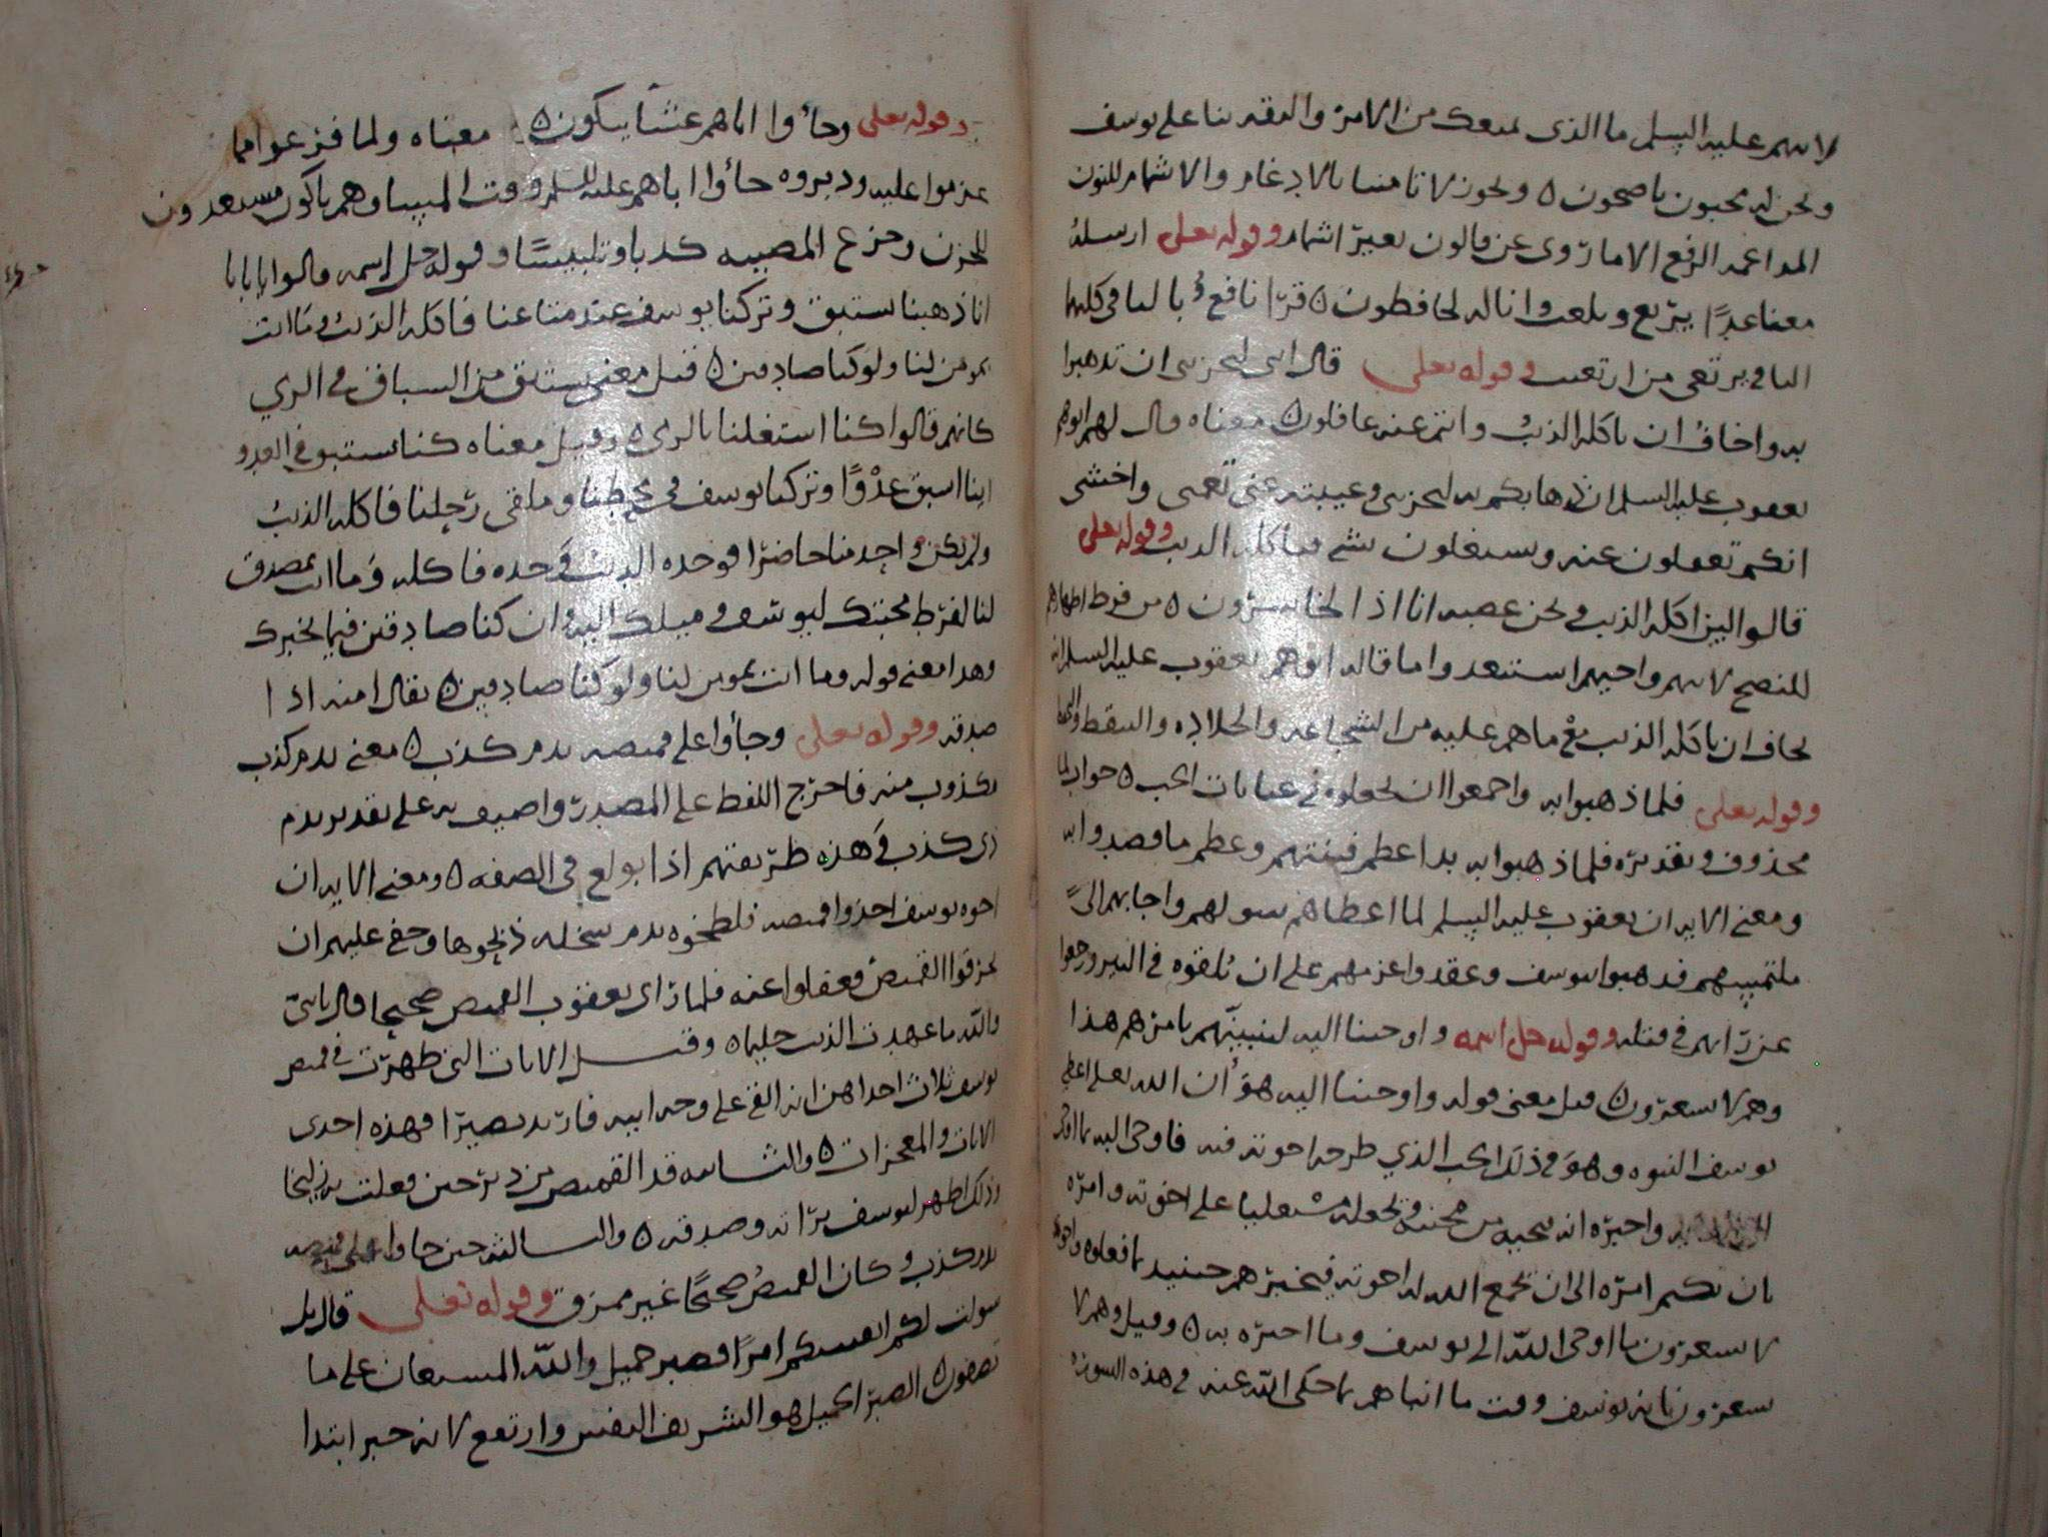 لابيهم عليه السلم ما الذي يمنعك من الامن والثقه بنا على يوسف
ونحن له محبون ناصحون ٥ ويجوز لا تامنا بالادغام والاشمام للنون
المداغمه الرفع الا ما روى عن قالون بغير اشمام وقوله تعلى ارسله
معنا غدًا يرتع ويلعب وانا له لحافظون ٥ قرا نافع بالياء في كليهما
الياء في يرتعي من ارتعيت وقوله تعلى قال اني ليحزنني ان تذهبوا
به واخاف ان ياكله الذئب وانتم عنه غافلون ٥ معناه قال لهم ابوهم
يعقوب عليه السلم ان ذهابكم به ليحزنني وغيبته عني تغمني واخشى
انكم تغفلون عنه وتشتغلون بشي فياكله الذيب وقوله تعلى
قالوا لين اكله الذيب ونحن عصبه انا اذا لخاسرون ٥ من فرط اظهارهم
للنصح لابيهم واخيهم استبعدوا ما قاله ابوهم يعقوب عليه السلم انه
يخاف ان ياكله الذيب مع ما هم عليه من الشجاعه والجلاده والتيقظ
وقوله تعلى فلما ذهبوا به واجمعوا ان يجعلوه في غيابات الجب ٥ جواب لما
محذوف وتقديره فلما ذهبوا به بدا عظم فتنتهم وعظم ما قصدوا به
ومعنى الايه ان يعقوب عليه السلم لما اعطاهم سولهم واجابهم الى
ملتمسهم فذهبوا بيوسف وعقدوا عزمهم على ان يلقوه في البير ورجعوا
عن رايهم في قتله وقوله جل اسمه واوحينا اليه لتنبينهم بامرهم هذا
وهم لا يشعرون ٥ قيل معنى قوله واوحينا اليه هو ان الله تعلى اعطى
يوسف النبوه وهو في ذلك الجب الذي طرحه اخوته فيه فاوحى اليه
واخبره انه ينجيه من محنته ويجعله مستعليا على اخوته وامره
بان يكتم امره الى ان يجمع الله له اخوته فيخبرهم حينيذ بما فعلوه
لا يشعرون بما اوحى الله الى يوسف وما اخبره به ٥ وقيل وهم لا
يشعرون بانه يوسف وقت ما انباهم بما حكى الله عنه في هذه السوره
وقوله تعلى وجاؤا اباهم عشاء يبكون ٥ معناه ولما فرغوا مما
عزموا عليه ودبروه جاؤا اباهم عليه السلم وقت المساء وهم باكون مستعدون
للحزن وجزع المصيبه كذبا وتلبيسًا وقوله جل اسمه قالوا يا ابانا
انا ذهبنا نستبق وتركنا يوسف عند متاعنا فاكله الذئب وما انت
بمومن لنا ولو كنا صادقين ٥ قيل معنى نستبق من السباق في الرمي
كانهم قالوا كنا اشتغلنا بالرمي ٥ وقيل معناه كنا نستبق في العدو
اينا اسبق عدْوًا وتركنا يوسف في محطنا وملقى رحلنا فاكله الذئب
ولم يكن واحد منا حاضرًا فوجده الذيب وحده فاكله وما انت بمصدق
لنا لفرط محبتك ليوسف وميلك اليه وان كنا صادقين فيما نخبرك
وهذا معنى قوله وما انت بمومن لنا ولو كنا صادقين ٥ يقال امنه اذا
صدقه وقوله تعلى وجاؤا على قميصه بدم كذب ٥ معنى بدم كذب
مكذوب منه فاخرج اللفظ على المصدر واضيف به على تقدير بدم
ذي كذب وهذه طريقتهم اذا بولغ في الصفه ٥ ومعنى الايه ان
اخوه يوسف اخذوا قميصه فلطخوه بدم سخله ذبحوها وخفي عليهم ان
يمزقوا القميص فغفلوا عنه فلما راى يعقوب القميص صحيحا قال يا بني
والله ما عهدت الذيب حليما ٥ وقيل الايات التي ظهرت في قميص
يوسف ثلاث احداهن انه القي على وجه ابيه فارتد بصيرًا فهذه احدى
الايات والمعجزات ٥ والثانيه قد القميص من دبر حين فعلت به زليخا
وذلك اظهر ليوسف براته وصدقه ٥ والثالثه حين جاوا على قميصه
بدم كذب وكان القميص صحيحًا غير ممزق وقوله تعلى قال بل
سولت لكم انفسكم امرًا فصبر جميل والله المستعان على ما
تصفون ٥ الصبر الجميل هو الشريف النفيس وارتفع لانه خبر ابتدا